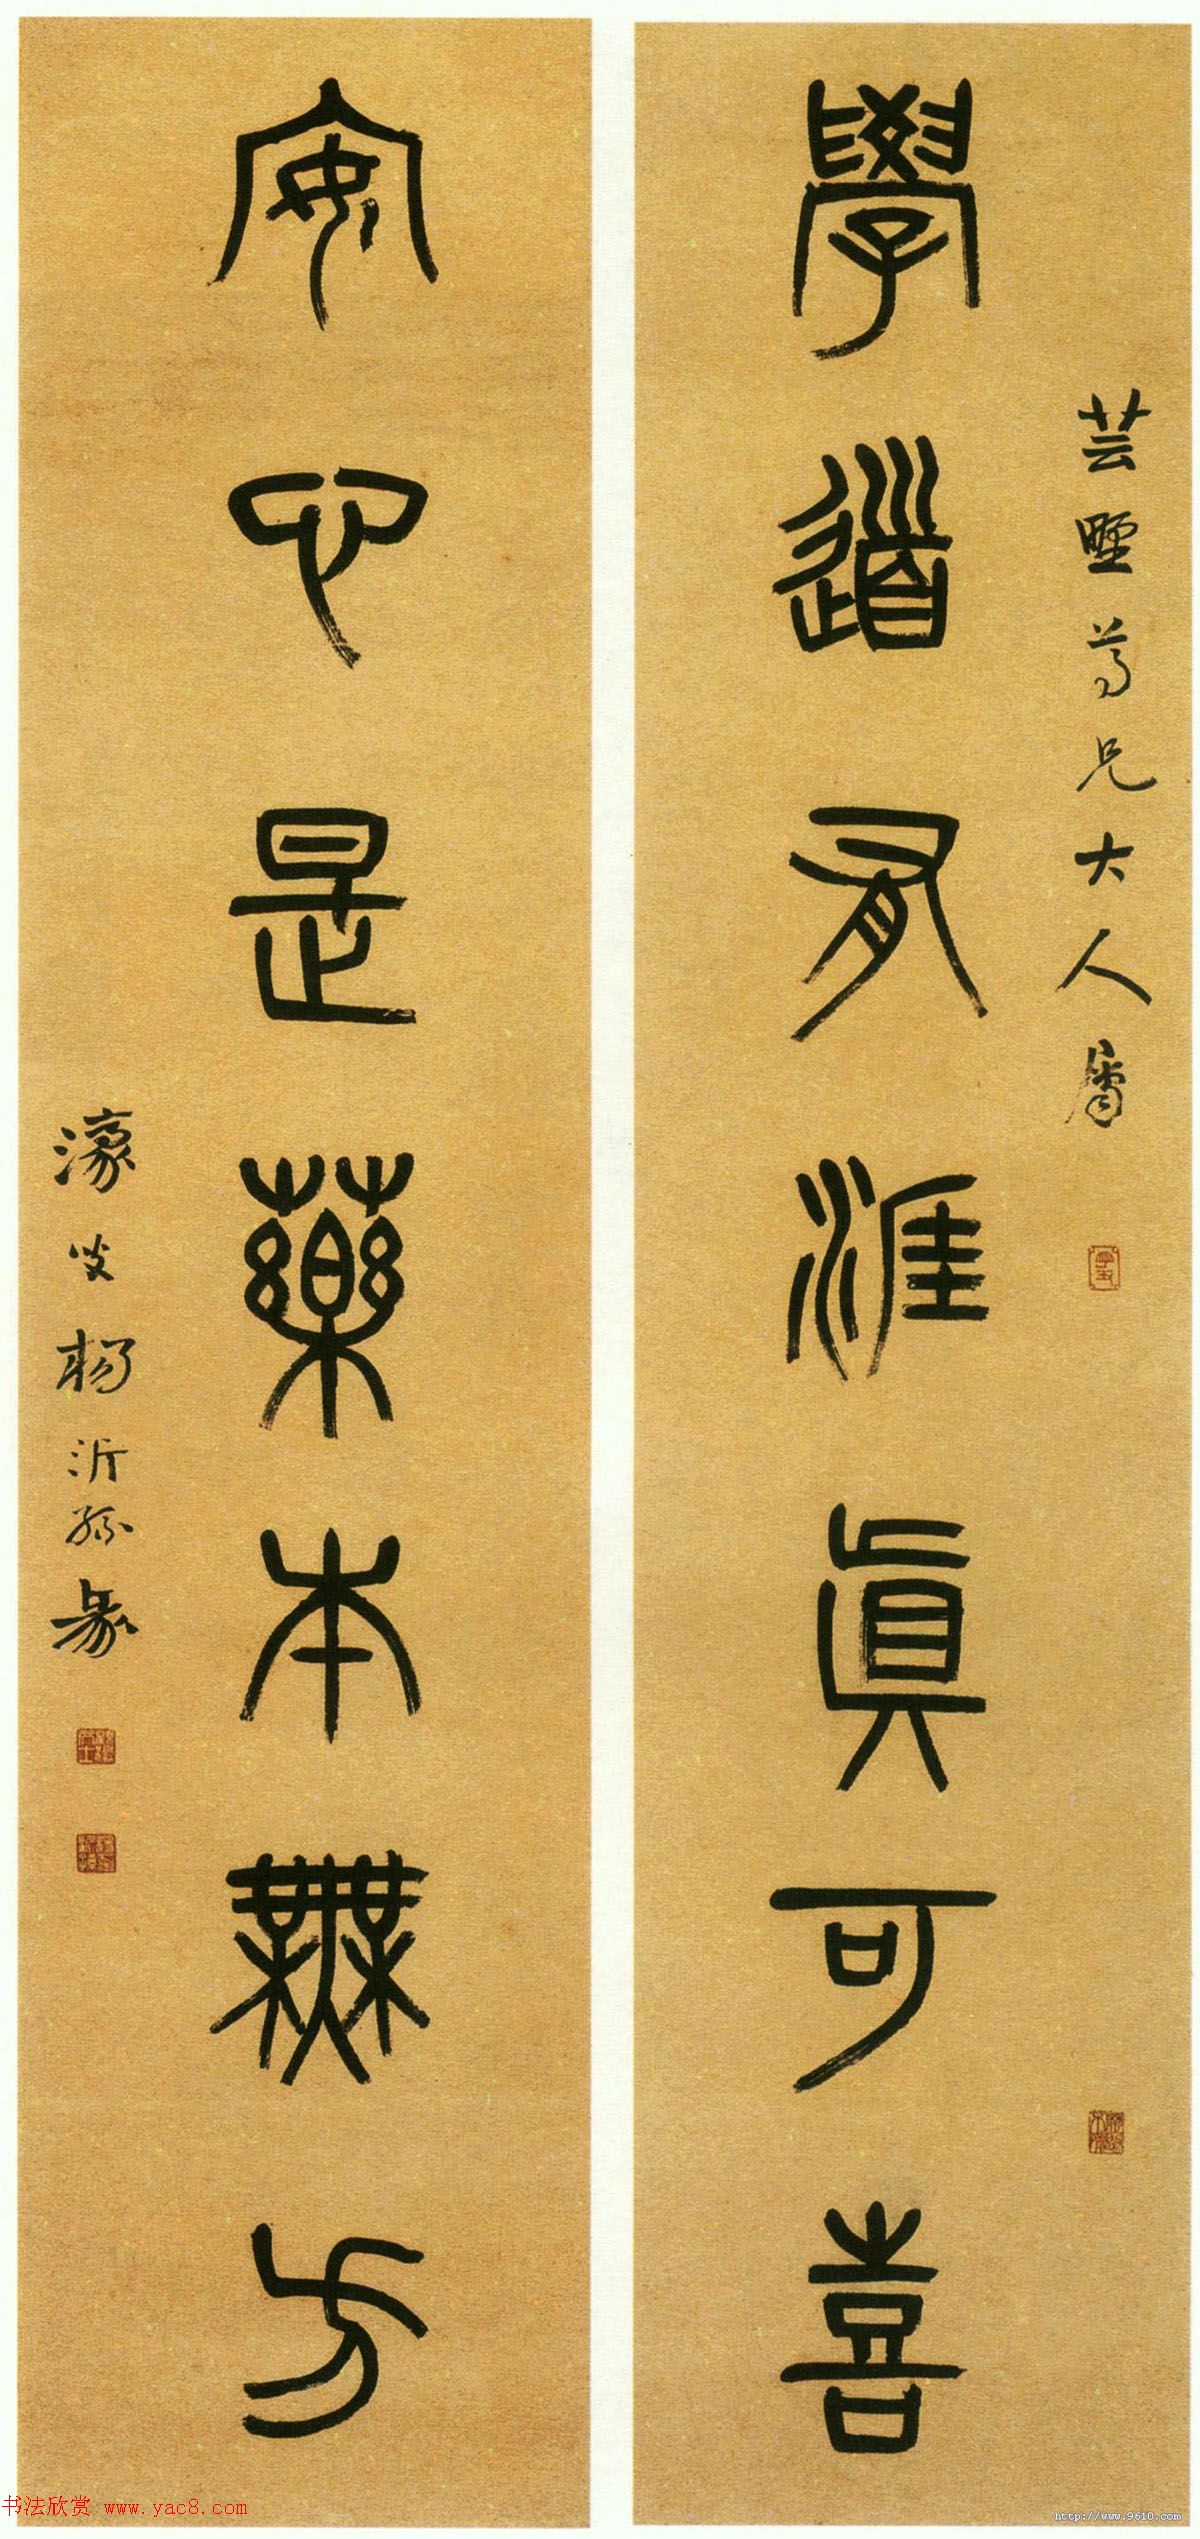 芸墅尊兄大人屬
學道有涯眞可喜
安心是藥本無方
濠叟楊沂孫篆
书法欣赏 www.yac8.com
http://www.9610.com